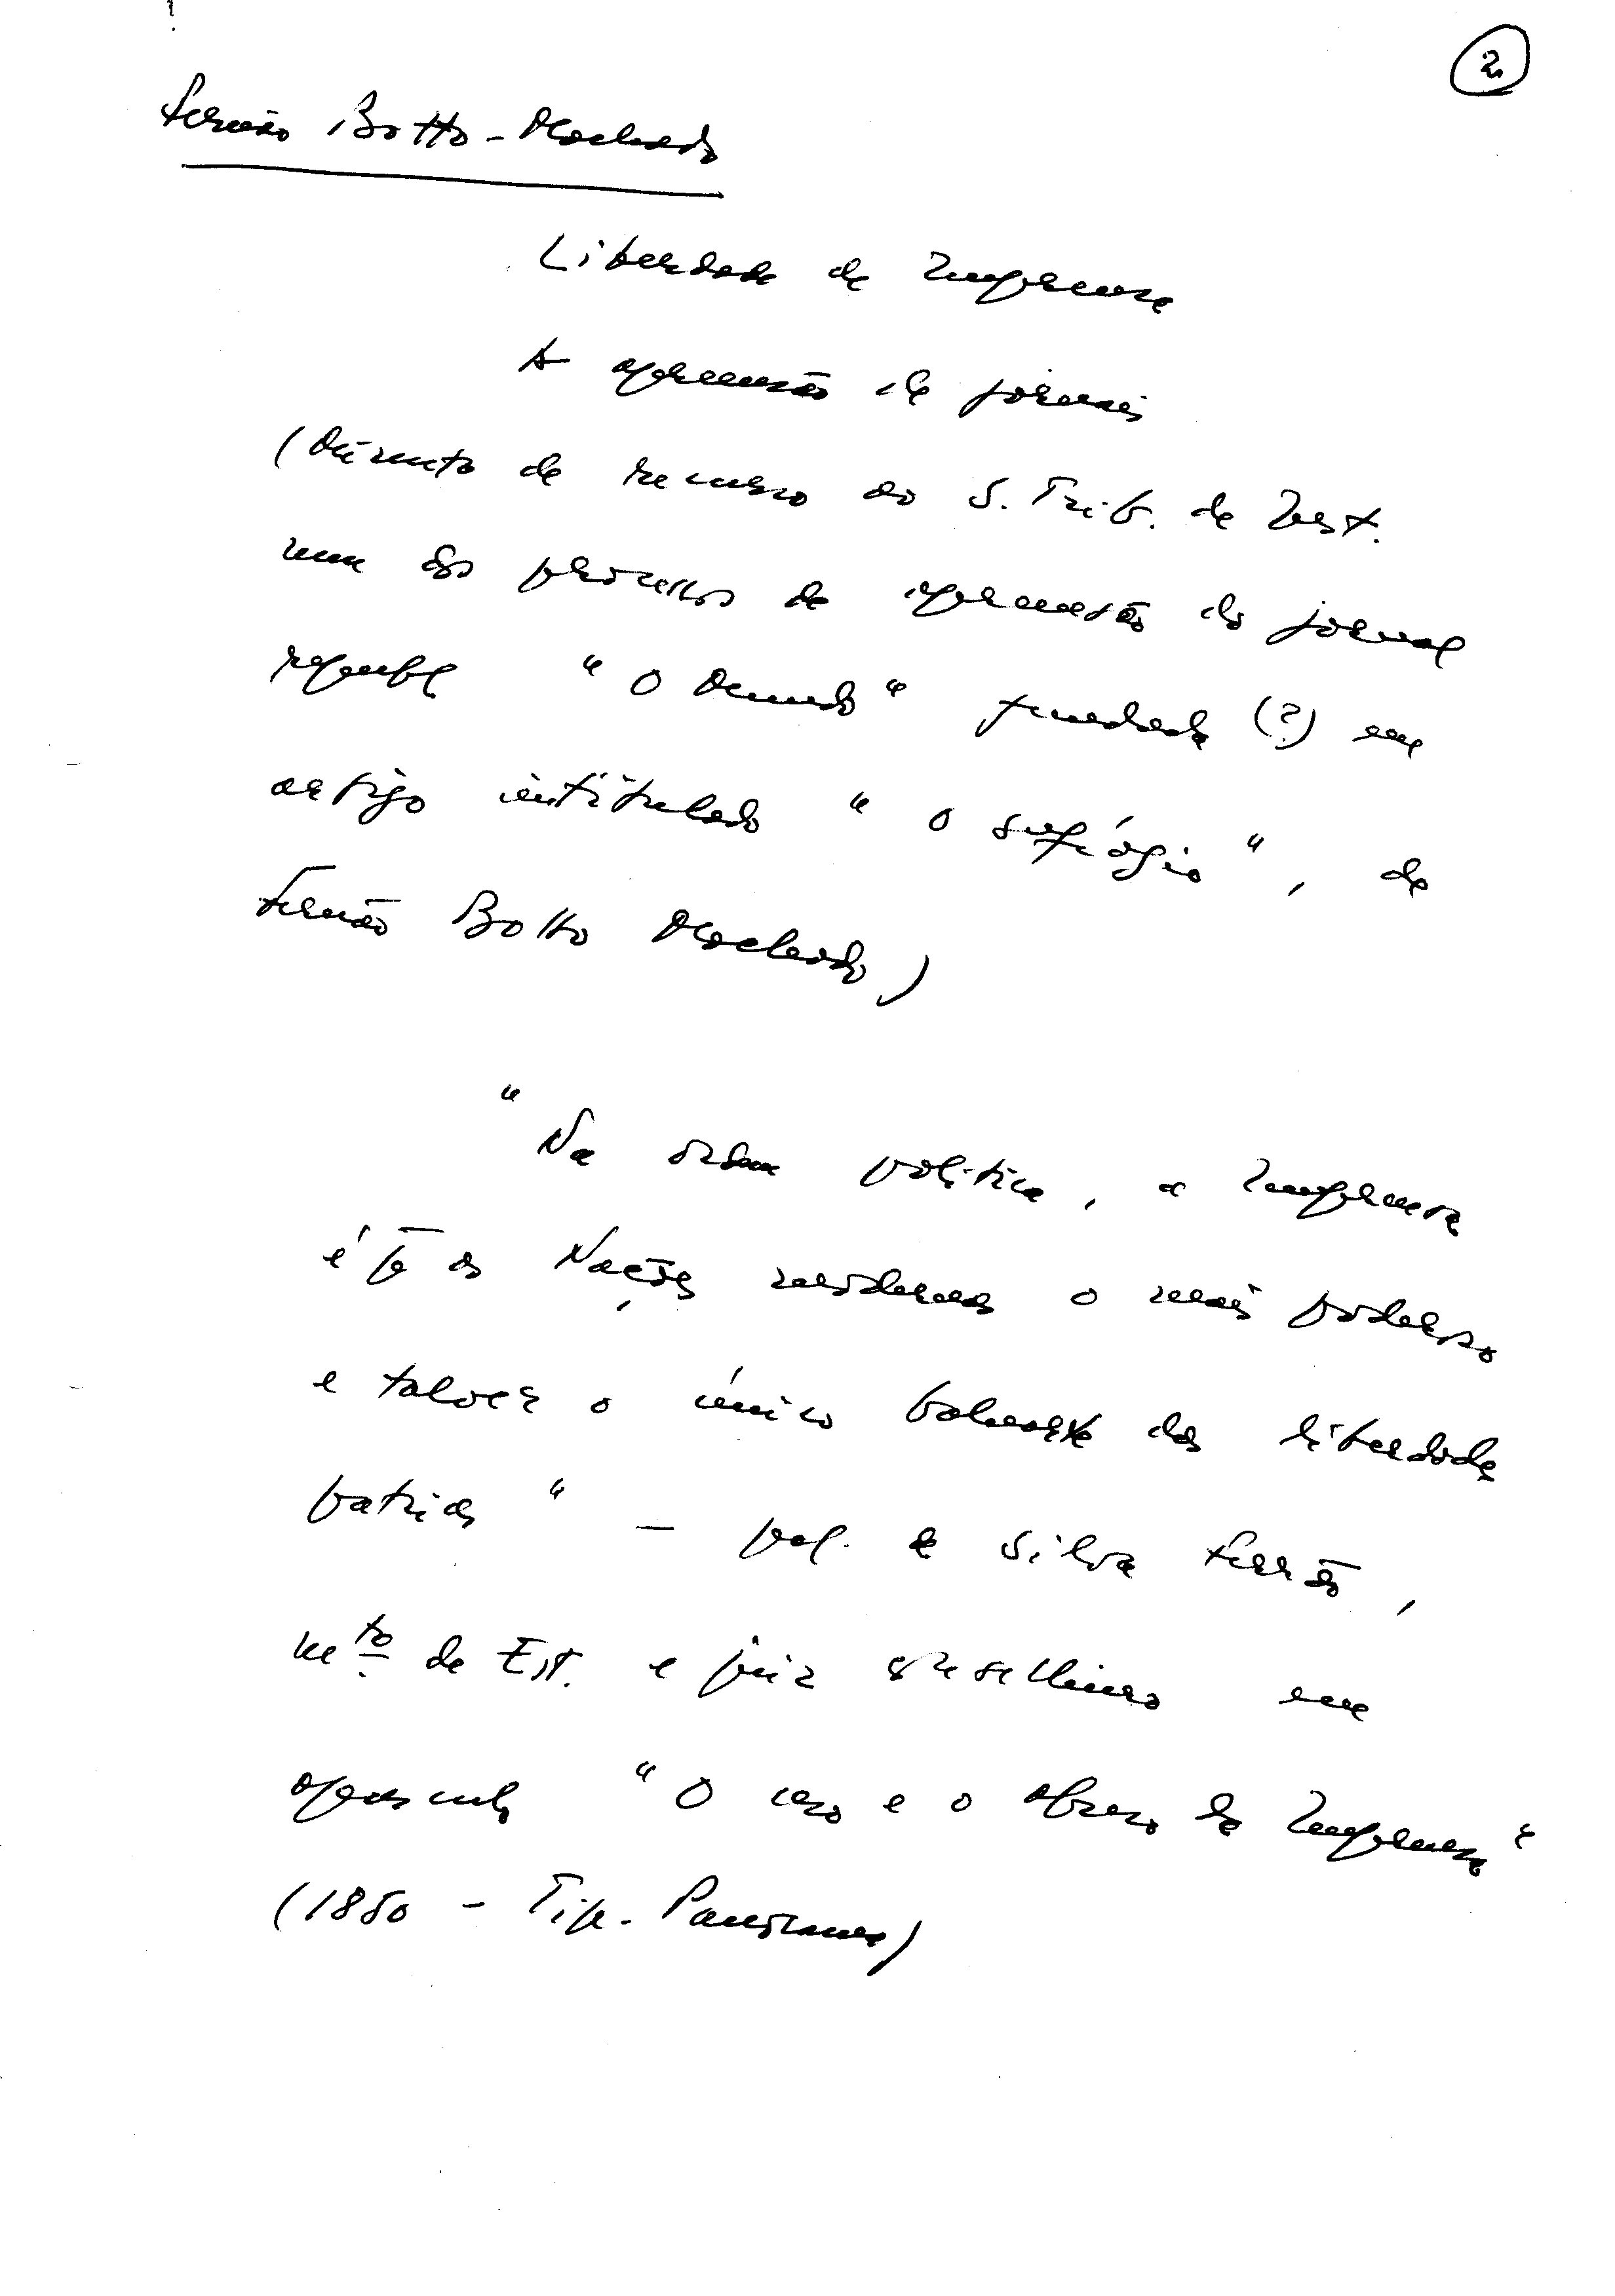 2
Fernão Botto-Machado
Liberdade de Imprensa
A apreensão de jornais
(Minuta de recurso ao S. Trib. de Just.
num dos processos de apreensão do jornal
republ "O Mundo" fundada (?) em
artigo intitulado "o sufrágio", de
Fernão Botto Machado)
"Na ordem politica, a Imprensa
é p^a as Nações modernas o mais poderoso
e talvez o único baluarte das liberdades
patrias" – pal. de Silva Ferrão,
m^to de Est. e juiz em
opusculo "O uso e o abuso da Imprensa"
(1850 - Tip. Panorama)